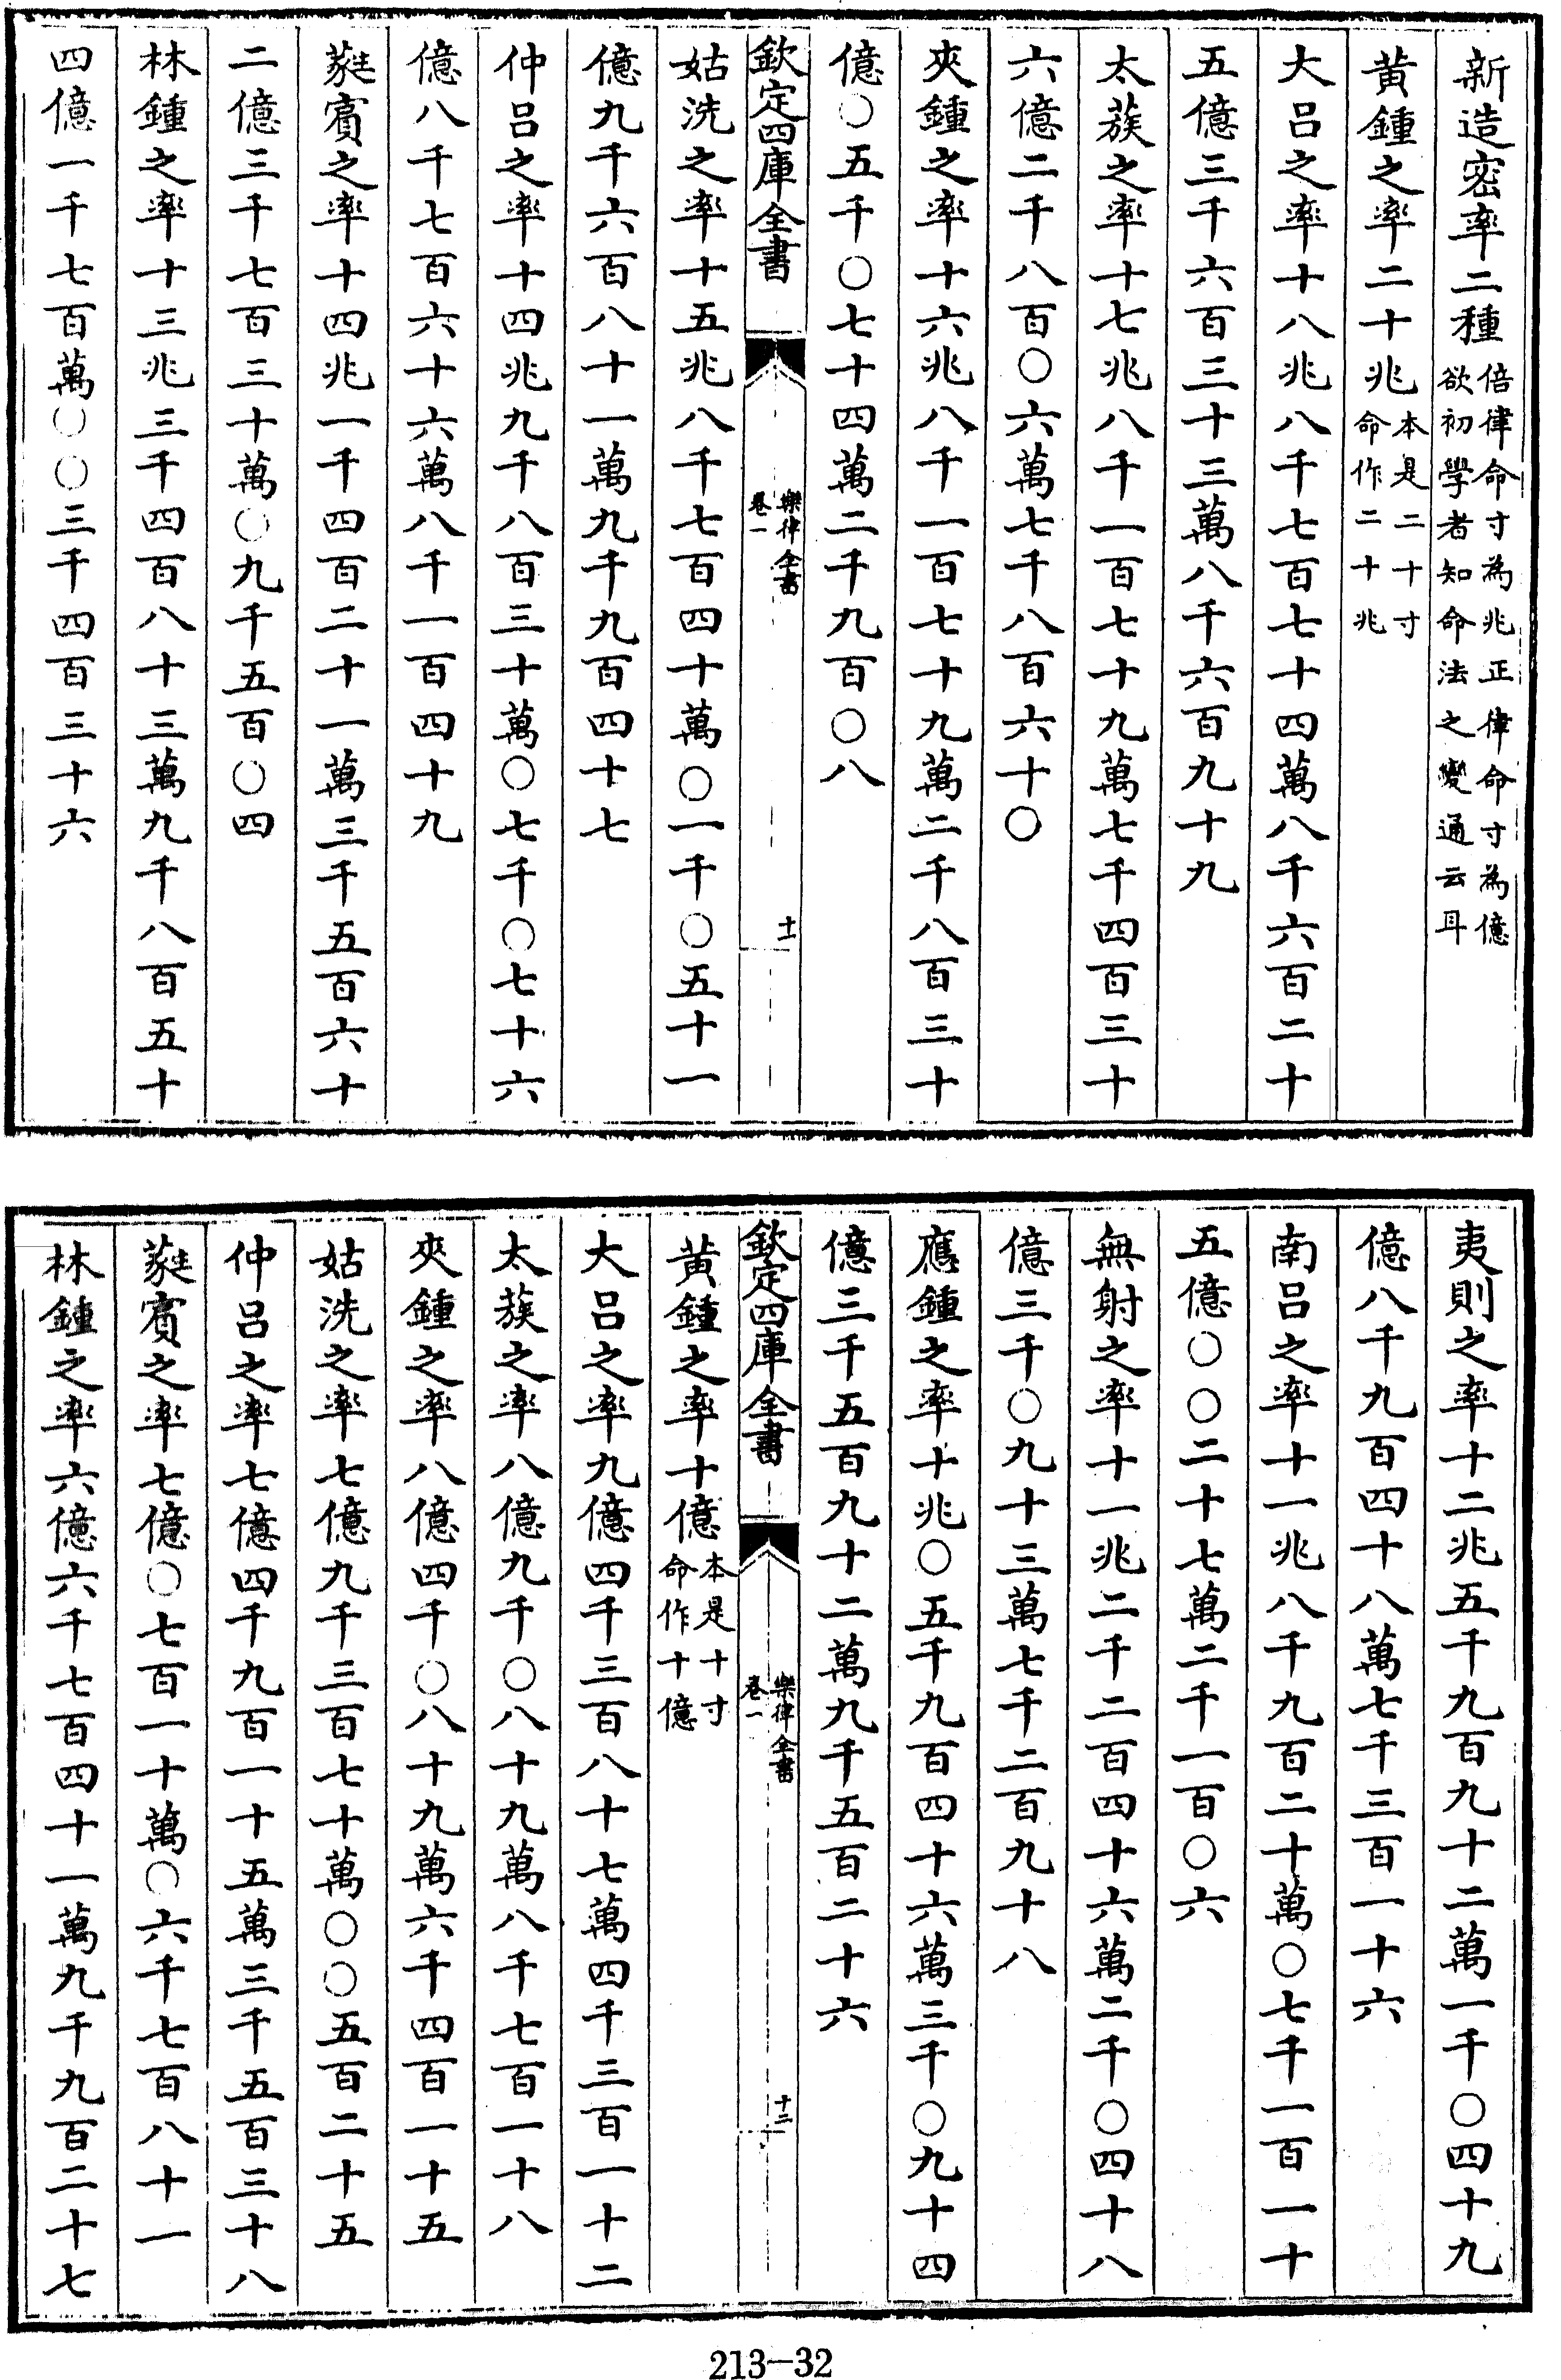 新造密率二種倍律命寸為兆正律命寸為億
欲初學者知命法之變通云耳
黃鍾之率二十兆本是二十寸
命作二十兆
大呂之率十八兆八千七百七十四萬八千六百二十
五億三千六百三十三萬八千六百九十九
太蔟之率十七兆八千一百七十九萬七千四百三十
六億二千八百〇六萬七千八百六十〇
夾鍾之率十六兆八千一百七十九萬二千八百三十
億〇五千〇七十四萬二千九百〇八
欽定四庫全書
樂律全書
卷一
十一
姑洗之率十五兆八千七百四十萬〇一千〇五十一
億九千六百八十一萬九千九百四十七
仲呂之率十四兆九千八百三十萬〇七千〇七十六
億八千七百六十六萬八千一百四十九
蕤賓之率十四兆一千四百二十一萬三千五百六十
二億三千七百三十萬〇九千五百〇四
林鍾之率十三兆三千四百八十三萬九千八百五十
四億一千七百萬〇〇三千四百三十六
夷則之率十二兆五千九百九十二萬一千〇四十九
億八千九百四十八萬七千三百一十六
南呂之率十一兆八千九百二十萬〇七千一百一十
五億〇〇二十七萬二千一百〇六
無射之率十一兆二千二百四十六萬二千〇四十八
億三千〇九十三萬七千二百九十八
應鍾之率十兆〇五千九百四十六萬三千〇九十四
億三千五百九十二萬九千五百二十六
欽定四庫全書
樂律全書
卷一
十二
黃鍾之率十億本是十寸
命作十億
大呂之率九億四千三百八十七萬四千三百一十二
太蔟之率八億九千〇八十九萬八千七百一十八
夾鍾之率八億四千〇八十九萬六千四百一十五
姑洗之率七億九千三百七十萬〇〇五百二十五
仲呂之率七億四千九百一十五萬三千五百三十八
蕤賓之率七億〇七百一十萬〇六千七百八十一
林鍾之率六億六千七百四十一萬九千九百二十七
213-32